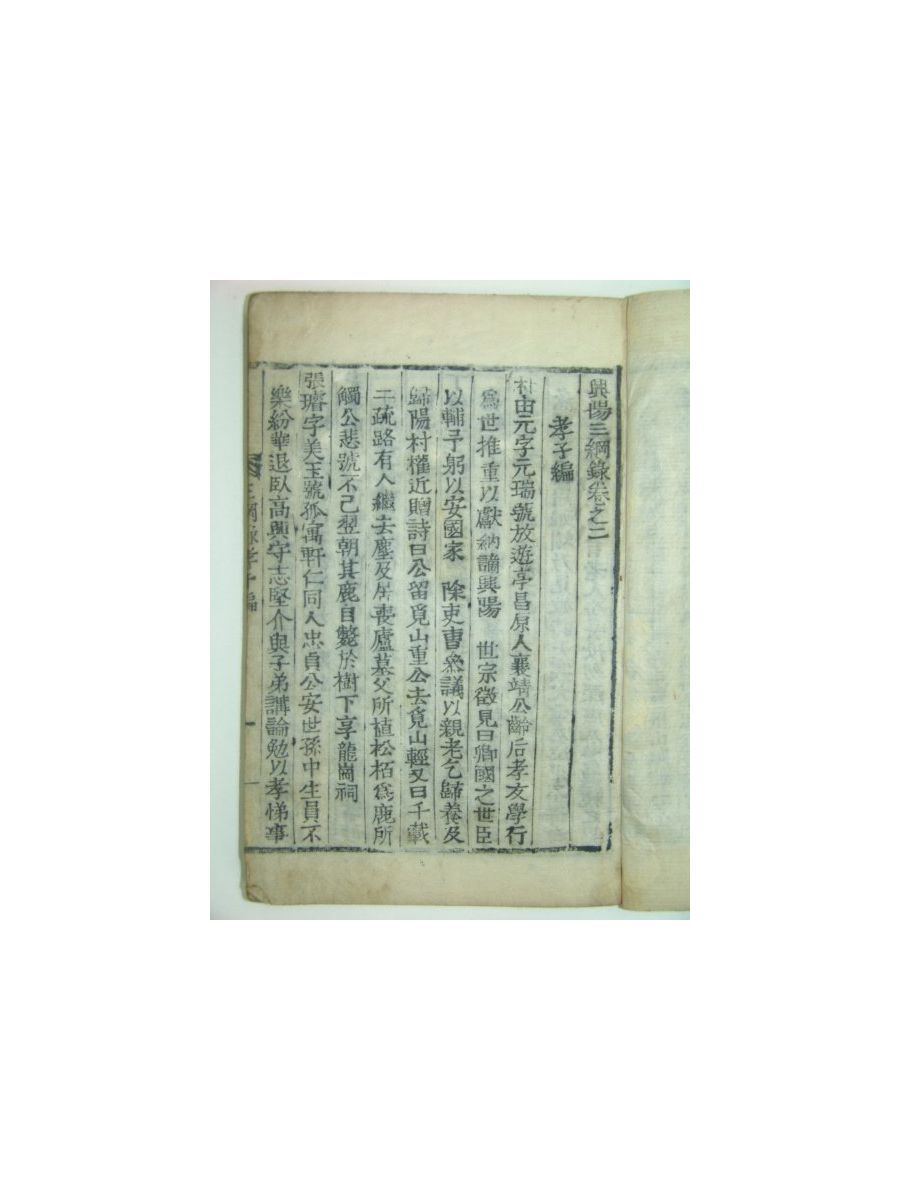 興陽三綱錄卷之二
孝子編
朴由元字元瑞號放遊亭昌原人襄靖公齡后孝友學行
爲世推重以獻納謫興陽 世宗徵見曰卿國之世臣
以輔予躬以安國家 除吏曹叅議以親老乞歸養及
歸陽村權近贈詩曰公留覓山重公去覓山輕又曰千載
二疏路有人繼去塵及居喪廬墓父所植松栢爲鹿所
觸公悲號不已翌朝其鹿自斃於樹下享龍崗祠
張璿字美玉號孤寓軒仁同人忠貞公安世孫中生員不
樂紛華退臥高興守志堅介與子弟講論勉以孝悌事
三綱錄孝子編